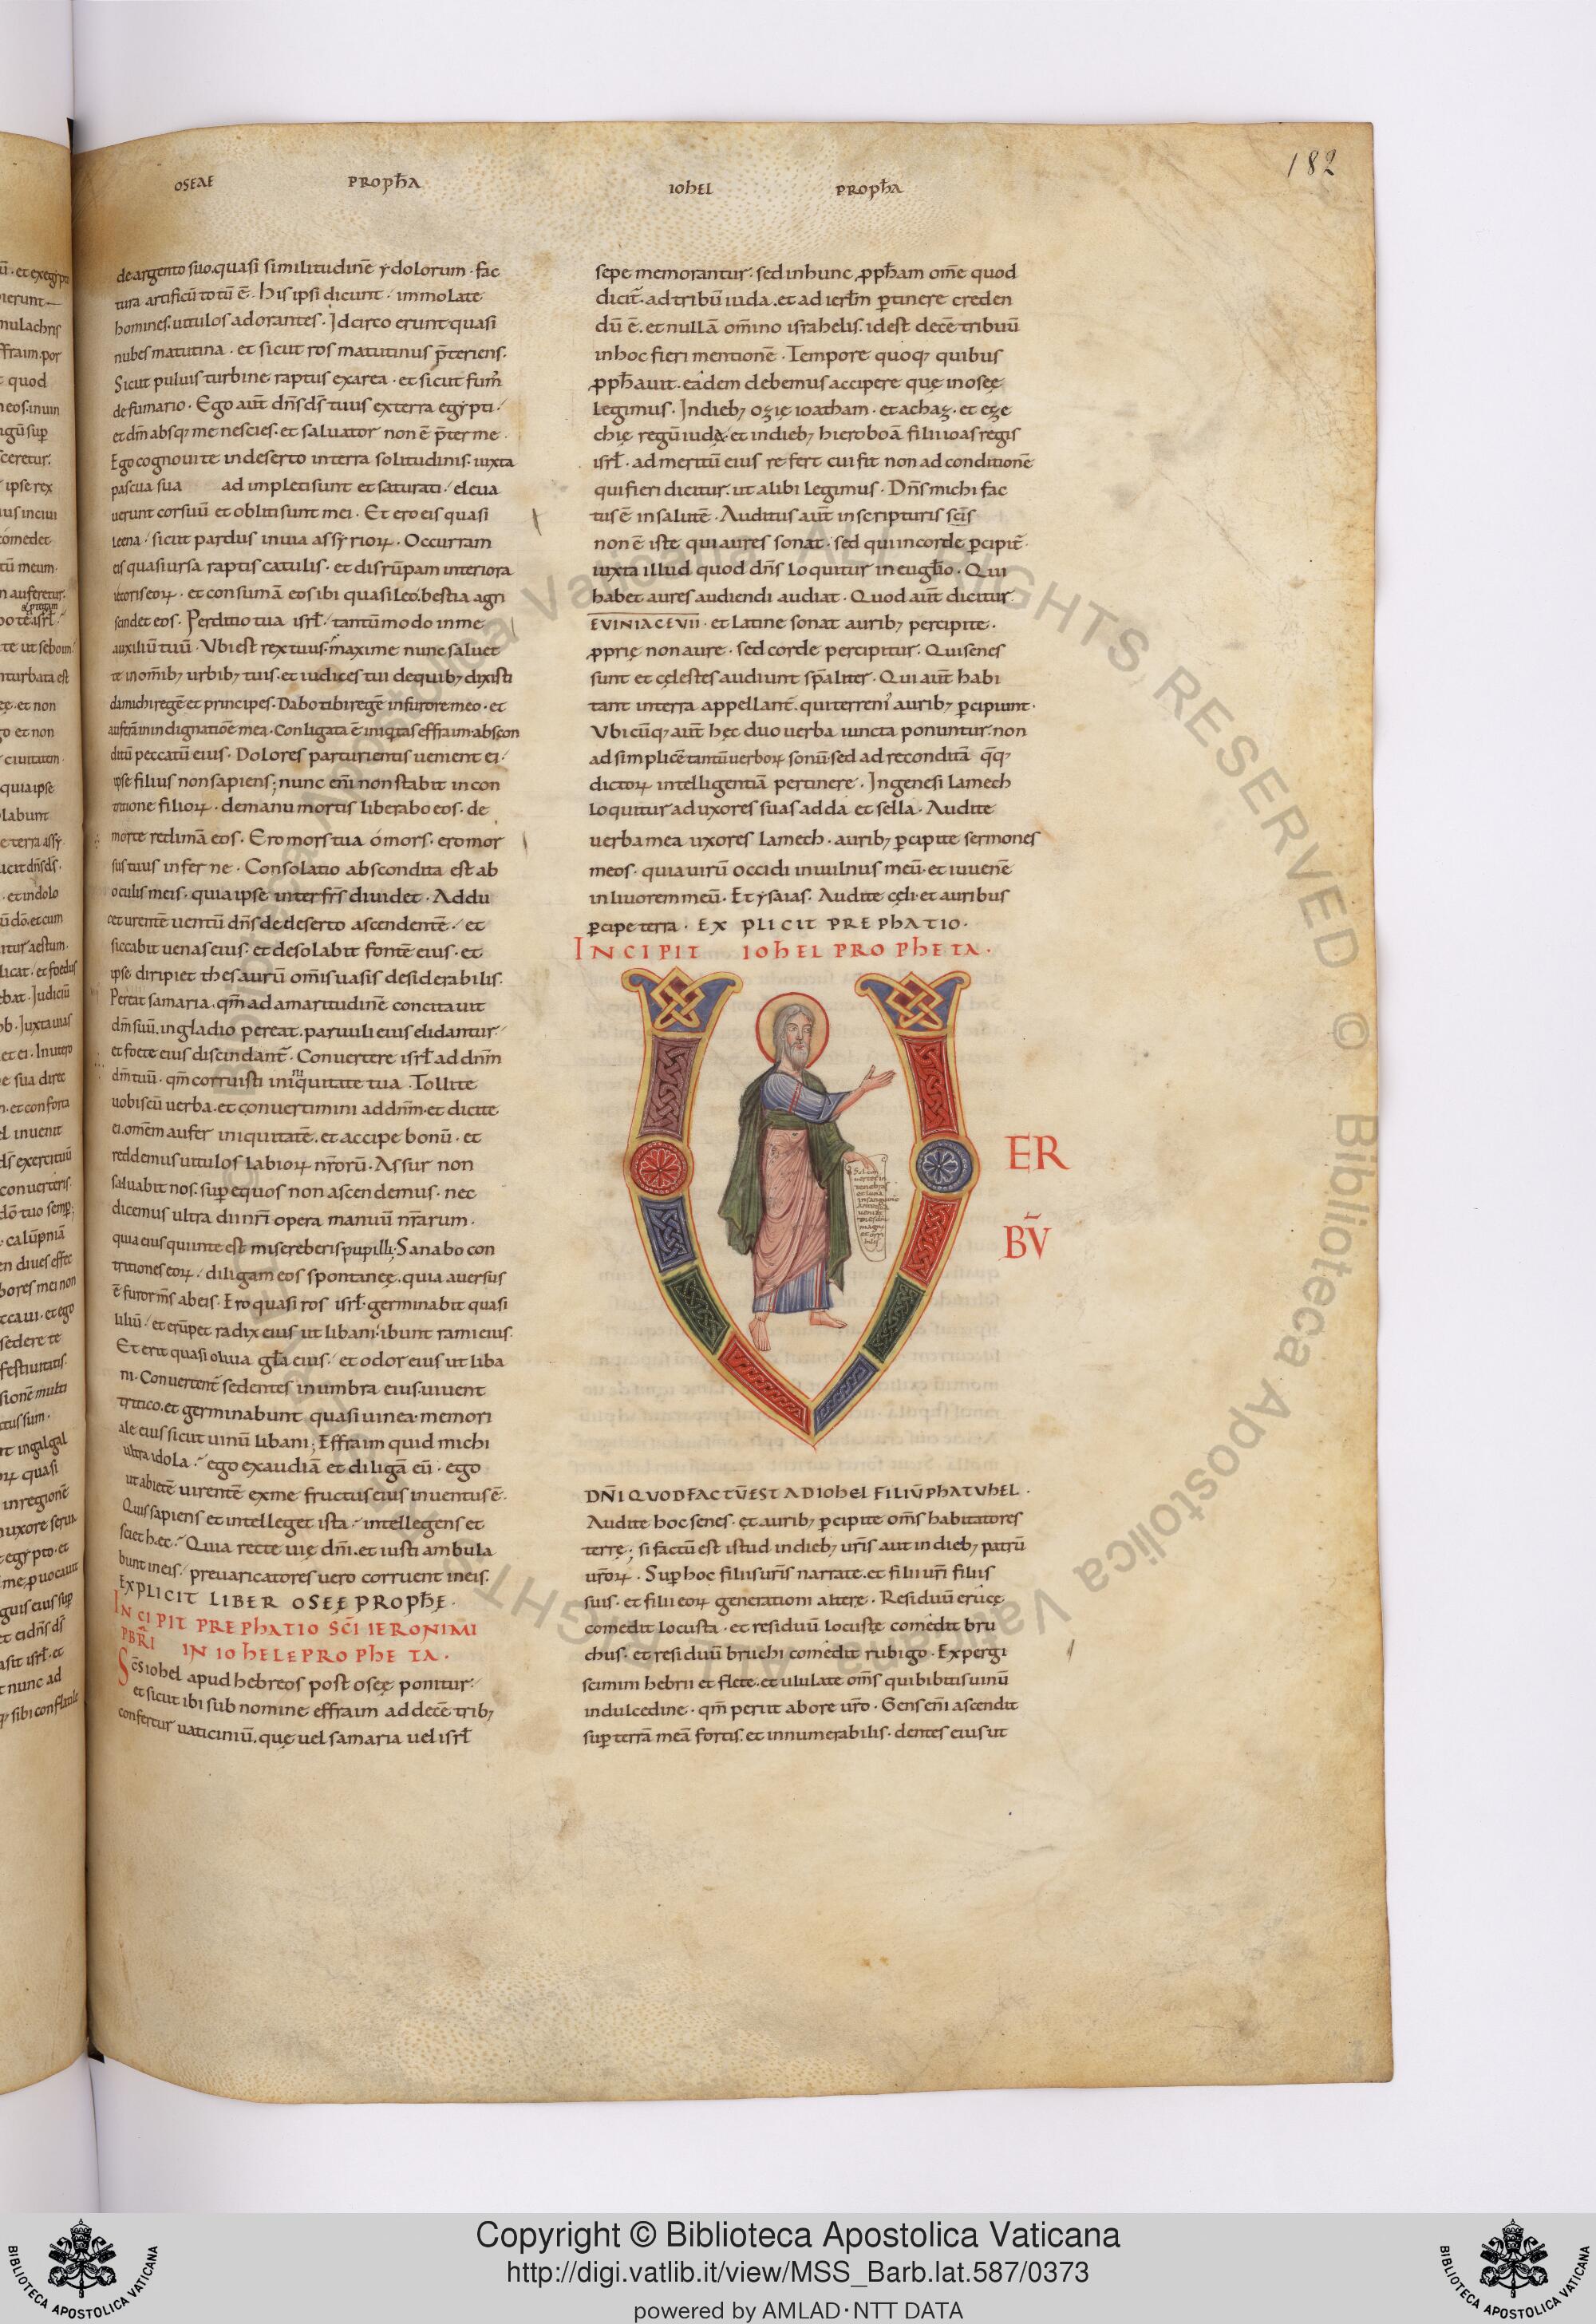 OSEAE PROPħA
IOHEL PROPħA
182
de argento suo. quasi similitudinē ydolorum · fac
tura artificū totū ē · His ipsi dicunt · immolate
homines. uitulos adorantes · Idcirco erunt quasi
nubes matutina · et sicut ros matutinus p̄teriens.
Sicut puluis turbine raptus ex area · et sicut fum᾽
de fumario · Ego aut̄ dn̄s ds̄ tuus ex terra egypti ·
et dm̄ absq; me nescies · et saluator non ē p̄ter me ·
Ego cognoui te in deserto in terra solitudinis · iuxta
pascua sua adimpleti sunt et saturati · eleua
uerunt cor suū et obliti sunt mei · Et ero eis quasi
leena · sicut pardus in uia assyrioꝝ · Occurram
eis quasi ursa raptis catulis · et disrūpam interiora
iecoris eoꝝ · et consumā eos ibi quasi leo. bestia agri
scindet eos · Perditio tua isrł · tantūmodo in me
auxiliū tuū · Vbi est rex tuus. maxime nunc saluet
te in om̄ib; urbib; tuis. et iudices tui de quib; dixisti
da michi regē et principes · Dabo tibi regē in furore meo · et
auferā in indignatiōe mea · Conligata ē iniq̇tas effraim. abscon
ditū peccatū eius · Dolores parturientis uenient ei ·
ipse filius non sapiens; nunc eni̅ non stabit in con
tritione filioꝝ · de manu mortis liberabo eos · de
morte redimā eos · Ero mors tua ó mors · ero mor
sus tuus inferne · Consolatio abscondita est ab
oculis meis · quia ipse inter frs̄ diuidet · Addu
cet urentē uentū dn̄s de deserto ascendentē · et
siccabit uenas eius · et desolabit fontē eius · et
ipse diripiet thesaurū om̄is uasis desiderabilis.
Pereat samaria · qm̄ ad amaritudinē concitauit
dm̄ suū. in gladio pereat. paruuli eius elidantur ·
et foete eius discindant̄ · Conuertere isrł ad dnm̄
dm̄ tuū · qm̄ corruisti in iniquitate tua · Tollite
uobiscū uerba. et conuertimini ad dnm̄. et dicite
ei. omēm aufer iniquitatē · et accipe bonū · et
reddemus uitulos labioꝝ nr̄orū · Assur non
saluabit nos. sup equos non ascendemus · nec
dicemus ultra dii nr̄i opera manuū nr̄arum ·
quia eius qui in te est misereberis pupilli; Sanabo con
tritiones eoꝝ · diligam eos spontanee. quia auersus
ē furor ms̄ ab eis · Ero quasi ros isrł · germinabit quasi
liliū · et erūpet radix eius ut libani · ibunt rami eius ·
Et erit quasi oliua gła eius · et odor eius ut liba
ni · Conuertent̄ sedentes in umbra eius. uiuent
tritico. et germinabunt quasi uinea · memori
ale eius sicut uinū libani; Effraim quid michi
ultra idola · ego exaudiā et diligā eū · ego
ut abietē uirentē ex me fructus eius inuentus ē ·
Quis sapiens et intelleget ista · intellegens et
sciet hęc · Quia recte uię dm̄i. et iusti ambula
bunt in eis · preuaricatores uero corruent in eis.
EXPLICIT LIBER OSEĘ PROPĦĘ ·
INCIPIT PREPHATIO SCĪ IERONIMI
PBR̄I IN IOHELE PROPHETA ·
Scs̄ iohel apud hebreos post osęę ponitur ·
et sicut ibi sub nomine effraim ad decē trib;
confertur uaticiniū. quę uel samaria uel isrł
sepe memorantur · sed in hunc ꝓpħam om̄e quod
dicit̄ · ad tribū iuda. et ad ierłm ꝑtinere creden
dū ē. et nullā om̄ino israhelis. id est decē tribuū
in hoc fieri mentionē · Tempore quoq; quibus
ꝓpħauit. eadem debemus accipere quę in osęę
legimus · In dieb; ozię ioatham · et achaz · et eze
chię regū iudę. et in dieb; hieroboā filii ioas regis
isrł · ad meritū eius refert cui fit non ad conditionē
qui fieri dicitur. ut alibi legimus · Dn̄s michi fac
tus ē in salutē · Auditus aut̄ in scripturis scīs
non ē iste qui aures sonat · sed qui in corde ꝑcipit̄ ·
iuxta illud quod dn̄s loquitur in eugłio · Qui
habet aures audiendi audiat · Quod aut̄ dicitur
EVINIACEVII · et latine sonat aurib; percipite ·
ꝓprię non aure · sed corde percipitur · Qui senes
sunt et cęlestes audiunt sp̄aliter · Qui aut̄ habi
tant in terra appellant̄. qui terreni᾽ aurib; ꝑcipiunt ·
Vbicūq; aut̄ hęc duo uerba iuncta ponuntur. non
ad simplicē tantū uerboꝝ sonū. sed ad reconditā q̄q;
dictoꝝ intelligentiā pertinere · In genesi lamech
loquitur ad uxores suas adda et sella · Audite
uerba mea uxores lamech · aurib; ꝑcipite sermones
meos · quia uirū occidi in uulnus meū · et iuuenē
in liuorem meū · Et ysaias · Audite cęli · et auribus
ꝑcipe terra · EXPLICIT PREPHATIO ·
INCIPIT IOHEL PROPHETA ·
V
ER
BV̄
Sol con
uertet̄ in
tenebras
et luna
in sanguinē
antequā
ueniat
dies dn̄i
magn᾽
et orri
bilis
DN̄I QUOD FACTŪ EST AD IOHEL FILIŪ PHATUHEL ·
Audite hoc senes · et aurib; ꝑcipite om̄s habitatores
terrę; si factū est istud in dieb; ur̄is aut in dieb; patrū
ur̄oꝝ · Sup hoc filiis ur̄is narrate. et filii ur̄i filiis
suis · et filii eoꝝ generationi alterę · Residuū erucę
comedit locusta · et residuū locustę comedit bru
chus · et residuū bruchi comedit rubigo · Expergi
scimini hebrii et flete. et ululate om̄s qui bibitis uinū
in dulcedine · qm̄ periit ab ore ur̄o · Gens eni̅ ascendit
sup terrā meā fortis. et innumerabilis · dentes eius ut
Copyright © Biblioteca Apostolica Vaticana
http://digi.vatlib.it/view/MSS_Barb.lat.587/0373
powered by AMLAD·NTT DATA
BIBLIOTECA APOSTOLICA VATICANA
BIBLIOTECA APOSTOLICA VATICANA